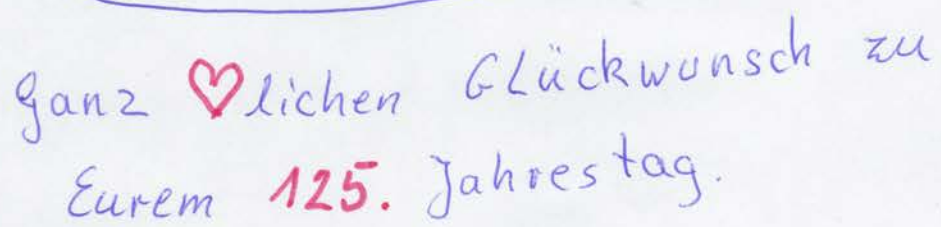 Ganz ♡lichen Glückwunsch zu
Eurem 125. Jahrestag.